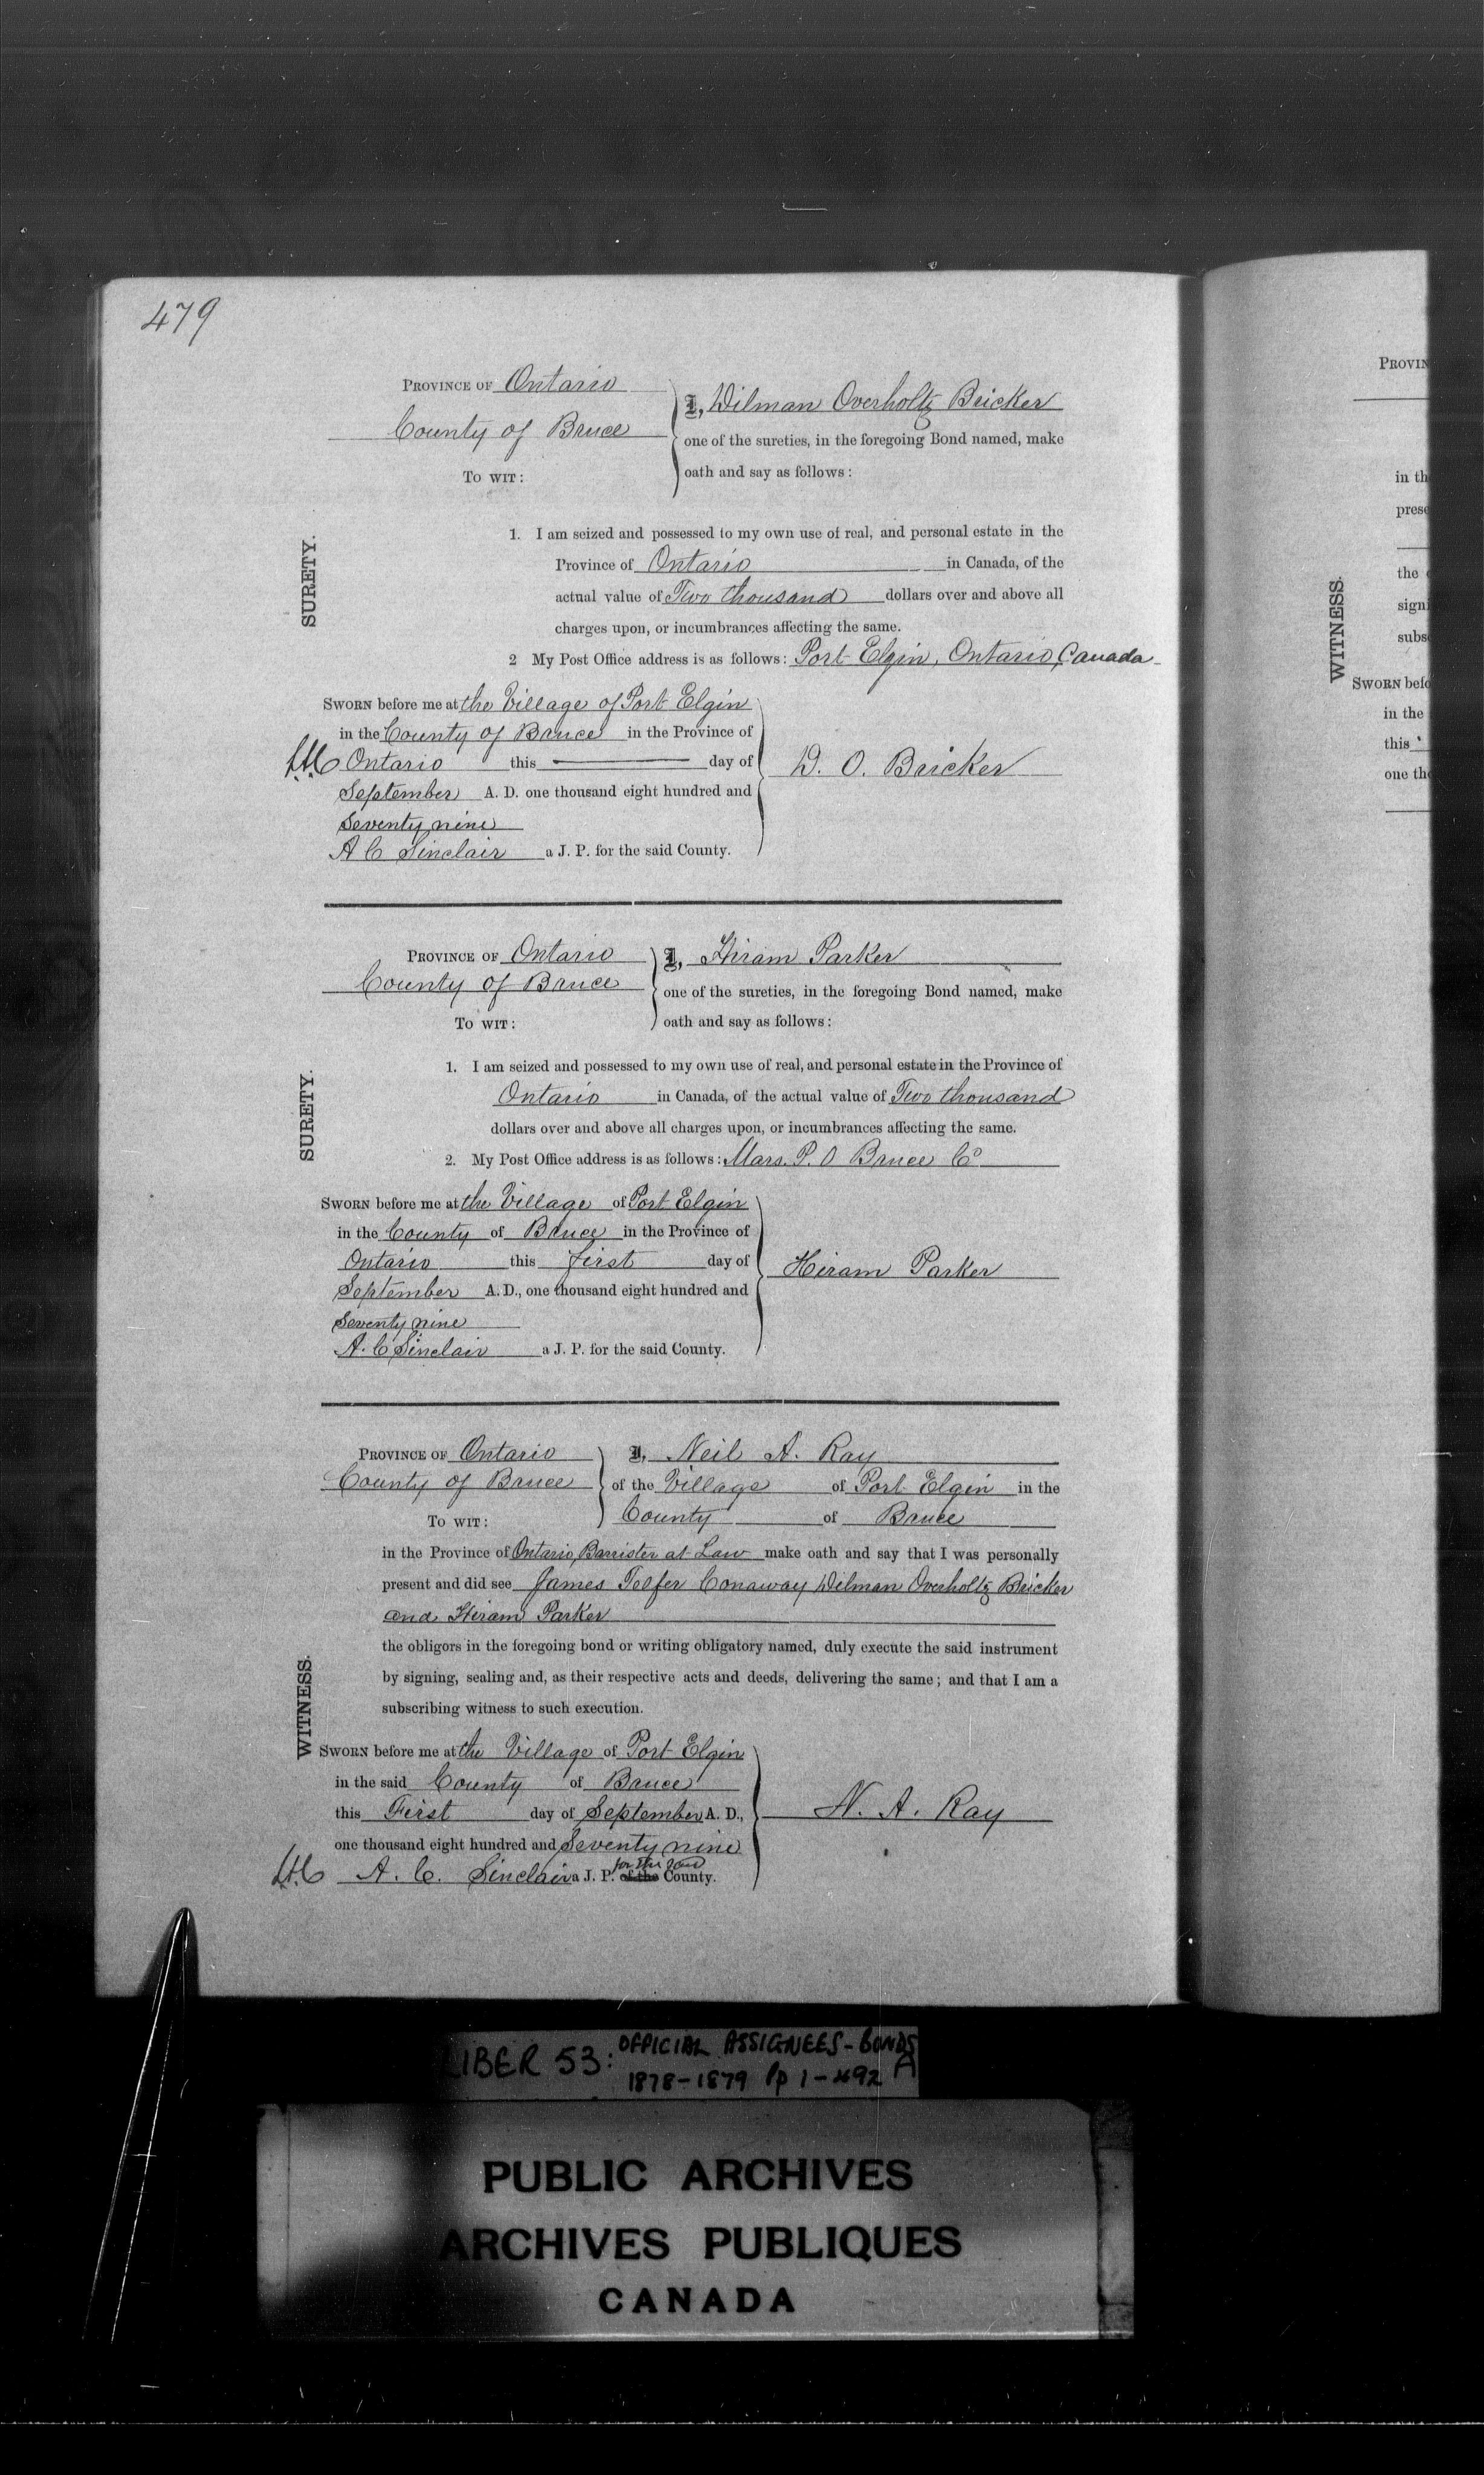 479
PROVINCE OF Ontario
County of Bruce
TO WIT:
I, Dilman Overholtz Bricker
one of the sureties, in the foregoing Bond named, make
oath and say as follows:
SURETY.
1. I am seized and possessed to my own use of real, and personal estate in the
Province of Ontario in Canada, of the
actual value of Two thousand dollars over and above all
charges upon, or incumbrances affecting the same.
2 My Post Office address is as follows: Port Elgin, Ontario, Canada
SWORN before me at the Village of Port Elgin
in the County of Bruce in the Province of
Ontario this day of
September A. D. one thousand eight hundred and
Seventy nine
A C Sinclair a J. P. for the said County.
D. O. Bricker
PROVINCE OF Ontario
County of Bruce
TO WIT:
I, Hiram Parker
one of the sureties, in the foregoing Bond named, make
oath and say as follows:
SURETY.
1. I am seized and possessed to my own use of real, and personal estate in the Province of
Ontario in Canada, of the actual value of Two thousand
dollars over and above all charges upon, or incumbrances affecting the same.
2. My Post Office address is as follows: Mars. P. O Bruce Co
SWORN before me at the Village of Port Elgin
in the County of Bruce in the Province of
Ontario this first day of
September A. D., one thousand eight hundred and
Seventy nine
A. C Sinclair a J. P. for the said County.
Hiram Parker
PROVINCE OF Ontario
County of Bruce
TO WIT:
I, Neil A. Ray
of the Village of Port Elgin in the
County of Bruce
in the Province of Ontario, Barrister at Law make oath and say that I was personally
present and did see James Telfer Conaway Dilman Overholtz Bricker
and Hiram Parker
the obligors in the foregoing bond or writing obligatory named, duly execute the said instrument
by signing, sealing and, as their respective acts and deeds, delivering the same; and that I am a
subscribing witness to such execution.
WITNESS.
SWORN before me at the Village of Port Elgin
in the said County of Bruce
this First day of September A. D.,
one thousand eight hundred and Seventy nine
for the said
A. C. Sinclair a J. P. of the County.
N. A. Ray
PROVIN
in th
prese
the
signi
subs
WITNESS.
SWORN befo
in the
this
one th
LIBER 53: OFFICIAL ASSIGNEES - BONDS
1878-1879 pp 1-492 A
PUBLIC ARCHIVES
ARCHIVES PUBLIQUES
CANADA